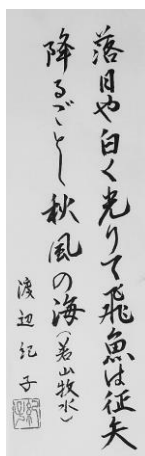 落日や白く光りて飛魚は征矢
降るごとし秋風の海(若山牧水)
渡辺紀子